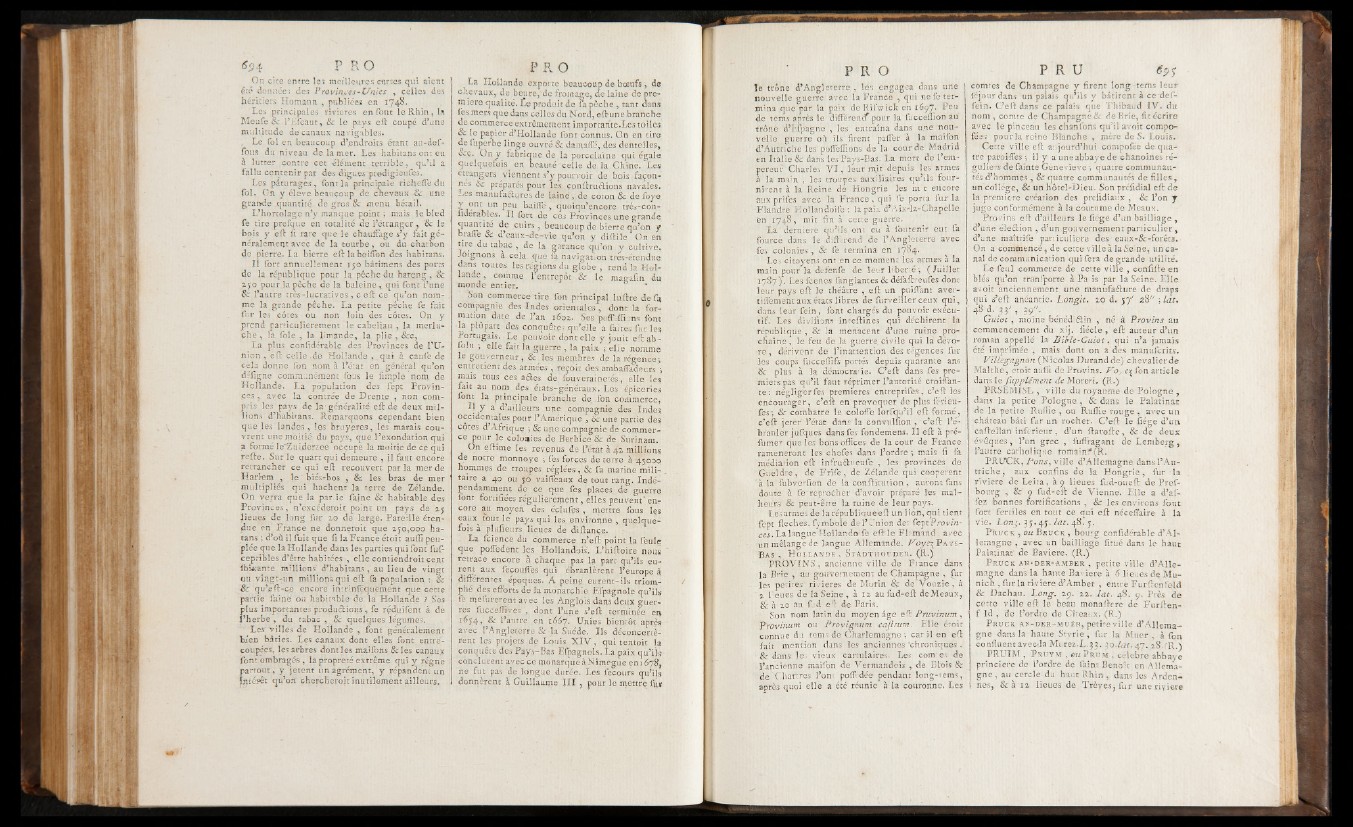 694 PRO
On cite entre les meilleures cartes qui aient
été données des Provinces-Unies , celles des
héritiers Homann , publiées en 1748.
Les principales rivieres en ſont le Rhin, la
Meuſe & l'Eſcaut, & le pays eſt coupé d'une
multitude de canaux navigables.
Le ſol en beaucoup d'endroits étant au-deſ-
ſous du niveau de la mer. Les habitans ont eu
à lutter contre cet élément terrible, qu'il a
fallu contenir par des digues prodigieuſes.
Les pâturages, font la principale richeſſe du
ſol. On y éleve beaucoup de chevaux & une
grande quantité de gros & menu bétail.
L'hortolage n'y manque point ; mais le bled
ſe tire preſque en totalité de l'étranger , & le
bois y eſt ſi rare que le chauffage s'y fait gé-
néralement avec de la tourbe , ou du charbon
de pierre. La bierre eſt la boiſſon des habitans.
Il ſort annuellement 150 bâtimens des ports
de la république pour la pêche du hareng , &
250 pour la pêche de la baleine, qui ſont l'une
& l'autre très-lucratives, c'eſt ce qu'on nom-
me la grande pêche. La petite pêche ſe fait
ſur les côtes ou non loin des côtes. On y
prend particulierement le cabeliau , la merlu-
che , la ſole , la limande, la plie, &c.
La plus conſidérable des Provinces de l'U-
nion , eſt celle de Hollande , qui à cauſe de
cela donne ſon nom à l'état en général qu'on
déſigne communément ſous le ſimple nom de
Hollande. La population des ſept Provin-
ces, avec la contrée de Drente , non com-
pris les pays de la généralité eſt de deux mil-
lions d'habitans. Remarquons cependant bien
que les landes, les bruyeres, les marais cou-
vrent une moitié du pays, que l'exondation qui
a formé le Zuiderzée occupe la moitié de ce qui
reſte. Sur le quart qui demeure , il faut encore
retrancher ce qui eſt recouvert par la mer de
Harlem , le biés-bos , & les bras de mer
multipliés qui hachent la terre de Zélande.
On verra que la partie ſaine & habitable des
Provinces, n'excéderoit point un pays de 25
lieues de long ſur 20 de large. Pareille éten-
due en France ne donneroit que 250,000 ha-
tans ; d'où il ſuit que ſi la France étoit auſſi peu-
plée que la Hollande dans les parties qui ſont ſuſ-
ceptibles d'être habitées , elle contiendroit cent
ſoixante millions d'habitans, au lieu de vingt
ou vingt-un millions qui eſt ſa population : &
& qu'eſt-ce encore intrinſéquement que cette
partie ſaine ou habitable de la Hollande ? Ses
plus importantes productions, ſe réduiſent à de
l'herbe , du tabac , & quelques légumes.
Les villes de Hollande , ſont généralement
bien bâties. Les canaux dont elles ſont entre-
coupées, les arbres dont les maiſons & les canaux
ſont ombragés, la propreté extrême qui y régne
partout, y jettent un agrément, y répandent un
intérêt qu'on chercheroit inutilement ailleurs.
PRO
La Hollande exporte beaucoup de bœufs, de
chevaux, de beure, de fromage, de laine de pre-
miere qualité. Le produit de ſa pêche, tant dans
ſes mers que dans celles du Nord, eſt une branche
de commerce extrêmement importante. Les toiles
& le papier d'Hollande ſont connus. On en tire
de ſuperbe linge ouvré & damaſſé, des dentelles,
&c. On y fabrique de la porcelaine qui égale
quelquefois en beauté celle de la Chine. Les
étrangers viennent s'y pourvoir de bois façon-
nés & préparés pour les conſtructions navales.
Les manufactures de laine, de coton & de ſoye
y ont un peu baiſſé, quoiqu'encore très-con-
ſidérables. Il ſort de ces Provinces une grande
quantité de cuirs, beaucoup de bierre qu'on y
braſſe & d'eaux-de-vie qu'on y diſtile. On en
tire du tabac, de la garance qu'on y cultive.
Joignons à cela que ſa navigation très-étendue
dans toutes les régions du globe , rend la Hol-
lande , comme l'entrepôt & le magaſin du
monde entier.
Son commerce tire ſon principal luſtre de ſa
compagnie des Indes orientales, dont la for-
mation date de l'an 1602. Ses poſſeſſions ſont
la plûpart des conquêtes qu'elle a faites ſur les
Portugais. Le pouvoir dont elle y jouit eſt ab-
ſolu ; elle fait la guerre, la paix ; elle nomme
le gouverneur, & les membres de la régence ;
entretient des armées, reçoit des ambaſſadeurs ;
mais tous ces actes de ſouverainetés, elle les
fait au nom des états-généraux. Les épiceries
ſont la principale branche de ſon commerce.
Il y a d'ailleurs une compagnie des Indes
occidentales pour l'Amerique , & une partie des
côtes d'Afrique ; & une compagnie de commer-
ce pour le colonies de Berbice & de Surinam.
On eſtime les revenus de l'état à 42 millions
de notre monnoye ; ſes forces de terre à 45000
hommes de troupes réglées, & ſa marine mili-
taire à 40 ou 50 vaiſſeaux de tout rang. Indé-
pendamment de ce que ſes places de guerre
ſont fortifiées régulièrement, elles peuvent en-
core au moyen des écluſes , mettre ſous les
eaux tout le pays qui les environne , quelque-
fois à pluſieurs lieues de diſtance.
La ſcience du commerce n'eſt point la ſeule
que poſſedent les Hollandois. L'hiſtoire nous
retrace encore à chaque pas la part qu'ils eu-
rent aux ſecouſſes qui ébranlèrent l'europe à
différentes époques. A peine eurent-ils triom-
phé des efforts de la monarchie Eſpagnole qu'ils
ſe meſurerent avec les Anglois dans deux guer-
res ſucceſſives , dont l'une s'eſt terminée en
1654, & l'autre en 1667. Unies bientôt après
avec l'Angleterre & la Suéde. Ils déconcertè-
rent les projets de Louis XIV , qui tentoit la
conquête des Pays-Bas Eſpagnols. La paix qu'ils
conclurent avec ce monarque à Nimegue en 1678,
ne fut pas de longue durée. Les ſecours qu'ils
donnèrent à Guillaume III , pour le mettre ſur
PRO
le trône d'Angleterre , les engagea dans une
nouvelle guerre avec la France , qui ne ſe ter-
mina que par la paix de Riſwick en 1697. Peu
de tems après le différend pour la ſucceſſion au
trône d'Eſpagne , les entraîna dans une nou-
velle guerre où ils firent paſſer à la maiſon
d'Autriche les poſſeſſions de la cour de Madrid
en Italie & dans les Pays-Bas. La mort de l'em-
pereur Charles VI, leur mit depuis les armes
à la main , les troupes auxiliaires qu'ils four-
nirent à la Reine de Hongrie les mit encore
aux priſes avec la France, qui ſe porta ſur la
Flandre Hollandoiſe : la paix d'Aix-la-Chapelle
en 1748, mit fin à cette guerre.
La derniere qu'ils ont eu à ſoutenir eut ſa
ſource dans le différend de l'Angleterre avec
ſes colonies, & ſe termina en 1784.
Les citoyens ont en ce moment les armes à la
main pour la défenſe de leur liberté; (Juillet
1787). Les ſcenes ſanglantes & déſaſtreuſes dont
leur pays eſt le théâtre , eſt un puiſſant aver-
tiſſement aux états libres de ſurveiller ceux qui,
dans leur ſein, ſont chargés du pouvoir exécu-
tif. Les diviſions inteſtines qui déchirent la
république , & la menacent d'une ruine pro-
chaine , le feu de la guerre civile qui la dévo-
re , dérivent de l'inattention des régences ſur
les coups ſucceſſifs portés depuis quarante ans
& plus à la démocratie. C'eſt dans ſes pre-
miers pas qu'il faut réprimer l'autorité croiſſan-
te : négliger ſes premieres entrepriſes, c'eſt les
encourager, c'eſt en provoquer de plus ſérieu-
ſes ; & combatre le coloſſe lorſqu'il eſt formé,
c'eſt jetter l'état dans la convulſion , c'eſt l'é-
branler juſques dans ſes fondemens. Il eſt à pré-
ſumer que les bons offices de la cour de France
rameneront les choſes dans l'ordre ; mais ſi ſa
médiation eſt infructueuſe , les provinces de
Gueldre, de Friſe, de Zélande qui cooperent
à la ſubverſion de la conſtitution , auront ſans
doute à ſe reprocher d'avoir préparé les mal-
heurs & peut-être la ruine de leur pays.
Les armes de la république eſt un lion, qui tient
ſept fleches, ſymbole de l'Union des ſept Provin-
ces. La langue Hollandoiſe eſt le Flamand avec
un mélange de langue Allemande. Voyez PAYS-
BAS , HOLLANDE , STADTHOUDER. (R.)
PROVINS, ancienne ville de France dans
la Brie , au gouvernement de Champagne , ſur
les petites rivieres de Morin & de Vouzie , à
2 lieues de la Seine , à 12 au ſud-eſt de Meaux,
& à 20 au ſud eſt de Paris.
Son nom latin du moyen âge eſt Pruvinum,
Provinum ou Provignum caſtrum. Elle étoit
connue du tems de Charlemagne ; car il en eſt
fait mention dans les anciennes chroniques ,
& dans les vieux cartulaires. Les comtes de
l'ancienne maiſon de Vermandois, de Blois &
de Chartres l'ont poſſédée pendant long-tems,
après quoi elle a été réunie à la couronne. Les
PRU 695
comtes de Champagne y firent long-tems leur
ſéjour dans un palais qu'ils y bâtirent à ce deſ-
ſein. C'eſt dans ce palais que Thibaud IV. du
nom , comte de Champagne & de Brie, fit écrire
avec le pinceau les chanſons qu'il avoit compo-
ſées pour la reine Blanche , mére de S. Louis.
Cette ville eſt aujourd'hui compoſée de qua-
tre paroiſſes ; il y a une abbaye de chanoines ré-
guliers de ſainte Genevieve ; quatre communau-
tés d'hommes , & quatre communautés de filles,
un collége, & un hôtel-Dieu. Son préſidial eſt de
la premiere création des préſidiaux , & l'on y
juge conformément à la coutume de Meaux.
Provins eſt d'ailleurs le ſiége d'un bailliage ,
d'une élection , d'un gouvernement particulier ,
d'une maîtriſe particuliere des eaux-&-forêts.
On a commencé, de cette ville à la Seine, un ca-
nal de communication qui ſera de grande utilité.
Le ſeul commerce de cette ville , conſiſte en
blés qu'on tranſporte à Paris par la Seine. Elle
avoit anciennement une manufacture de draps
qui s'eſt anéantie. Longit. 20 d. 57' 28" ; lat.
48 d. 33' , 39".
Guiot , moine bénédictin , né à Provins au
commencement du xij. ſiècle, eſt auteur d'un
roman appellé la Bible-Guiot, qui n'a jamais
été imprimée , mais dont on a des manuſcrits.
Villegagnon (Nicolas Durand de) chevalier de
Malthe, étoit auſſi de Provins. Voyez ſon article
dans le ſupplément de Moreri. (R.)
PRSÉMISL , ville du royaume de Pologne ,
dans la petite Pologne , & dans le Palatinat
de la petite Ruſſie , ou Ruſſie rouge , avec un
château bâti ſur un rocher. C'eſt le ſiége d'un
caſtellan inférieur , d'un ſtaroſte , & de deux
évêques, l'un grec , ſuffragant de Lemberg,
l'autre catholique romain. (R.
PRUCK, Pons, ville d'Allemagne dans l'Au-
triche , aux confins de la Hongrie , ſur la
riviere de Leita , à 9 lieues ſud-oueſt de Preſ-
bourg , & 9 ſud-eſt de Vienne. Elle a d'aſ-
ſez bonnes fortifications , & les environs ſont
fort fertiles en tout ce qui eſt néceſſaire à la
vie. Long. 35. 45. lat. 48. 5.
PRUCK , ou BRUCK , bourg conſidérable d'Al-
lemagne , avec un bailliage ſitué dans le haut
Palatinat de Baviere. (R.)
PRUCK AN-DER-AMBER , petite ville d'Alle-
magne dans la haute Baviere à 6 lieues de Mu-
nich , ſur la riviere d'Amber , entre Furſtenfeld
& Dachau. Long. 29. 22. lat. 48. 9. Près de
cette ville eſt le beau monaſtere de Furſten-
feld, de l'ordre de Cîteaux. (R.)
PRUCK AN-DER-MUEH, petite ville d'Allema-
gne dans la haute Styrie , ſur la Muer , à ſon
confluent avec la Murez. L. 33. 30. lat. 47. 28 (R.)
PRUIM , PRUYM , ou PRUM , célebre abbaye
princiere de l'ordre de ſaint Benoît en Allema-
gne , au cercle du haut Rhin , dans les Arden-
nes, & à 12 lieues de Trèves, ſur une riviere